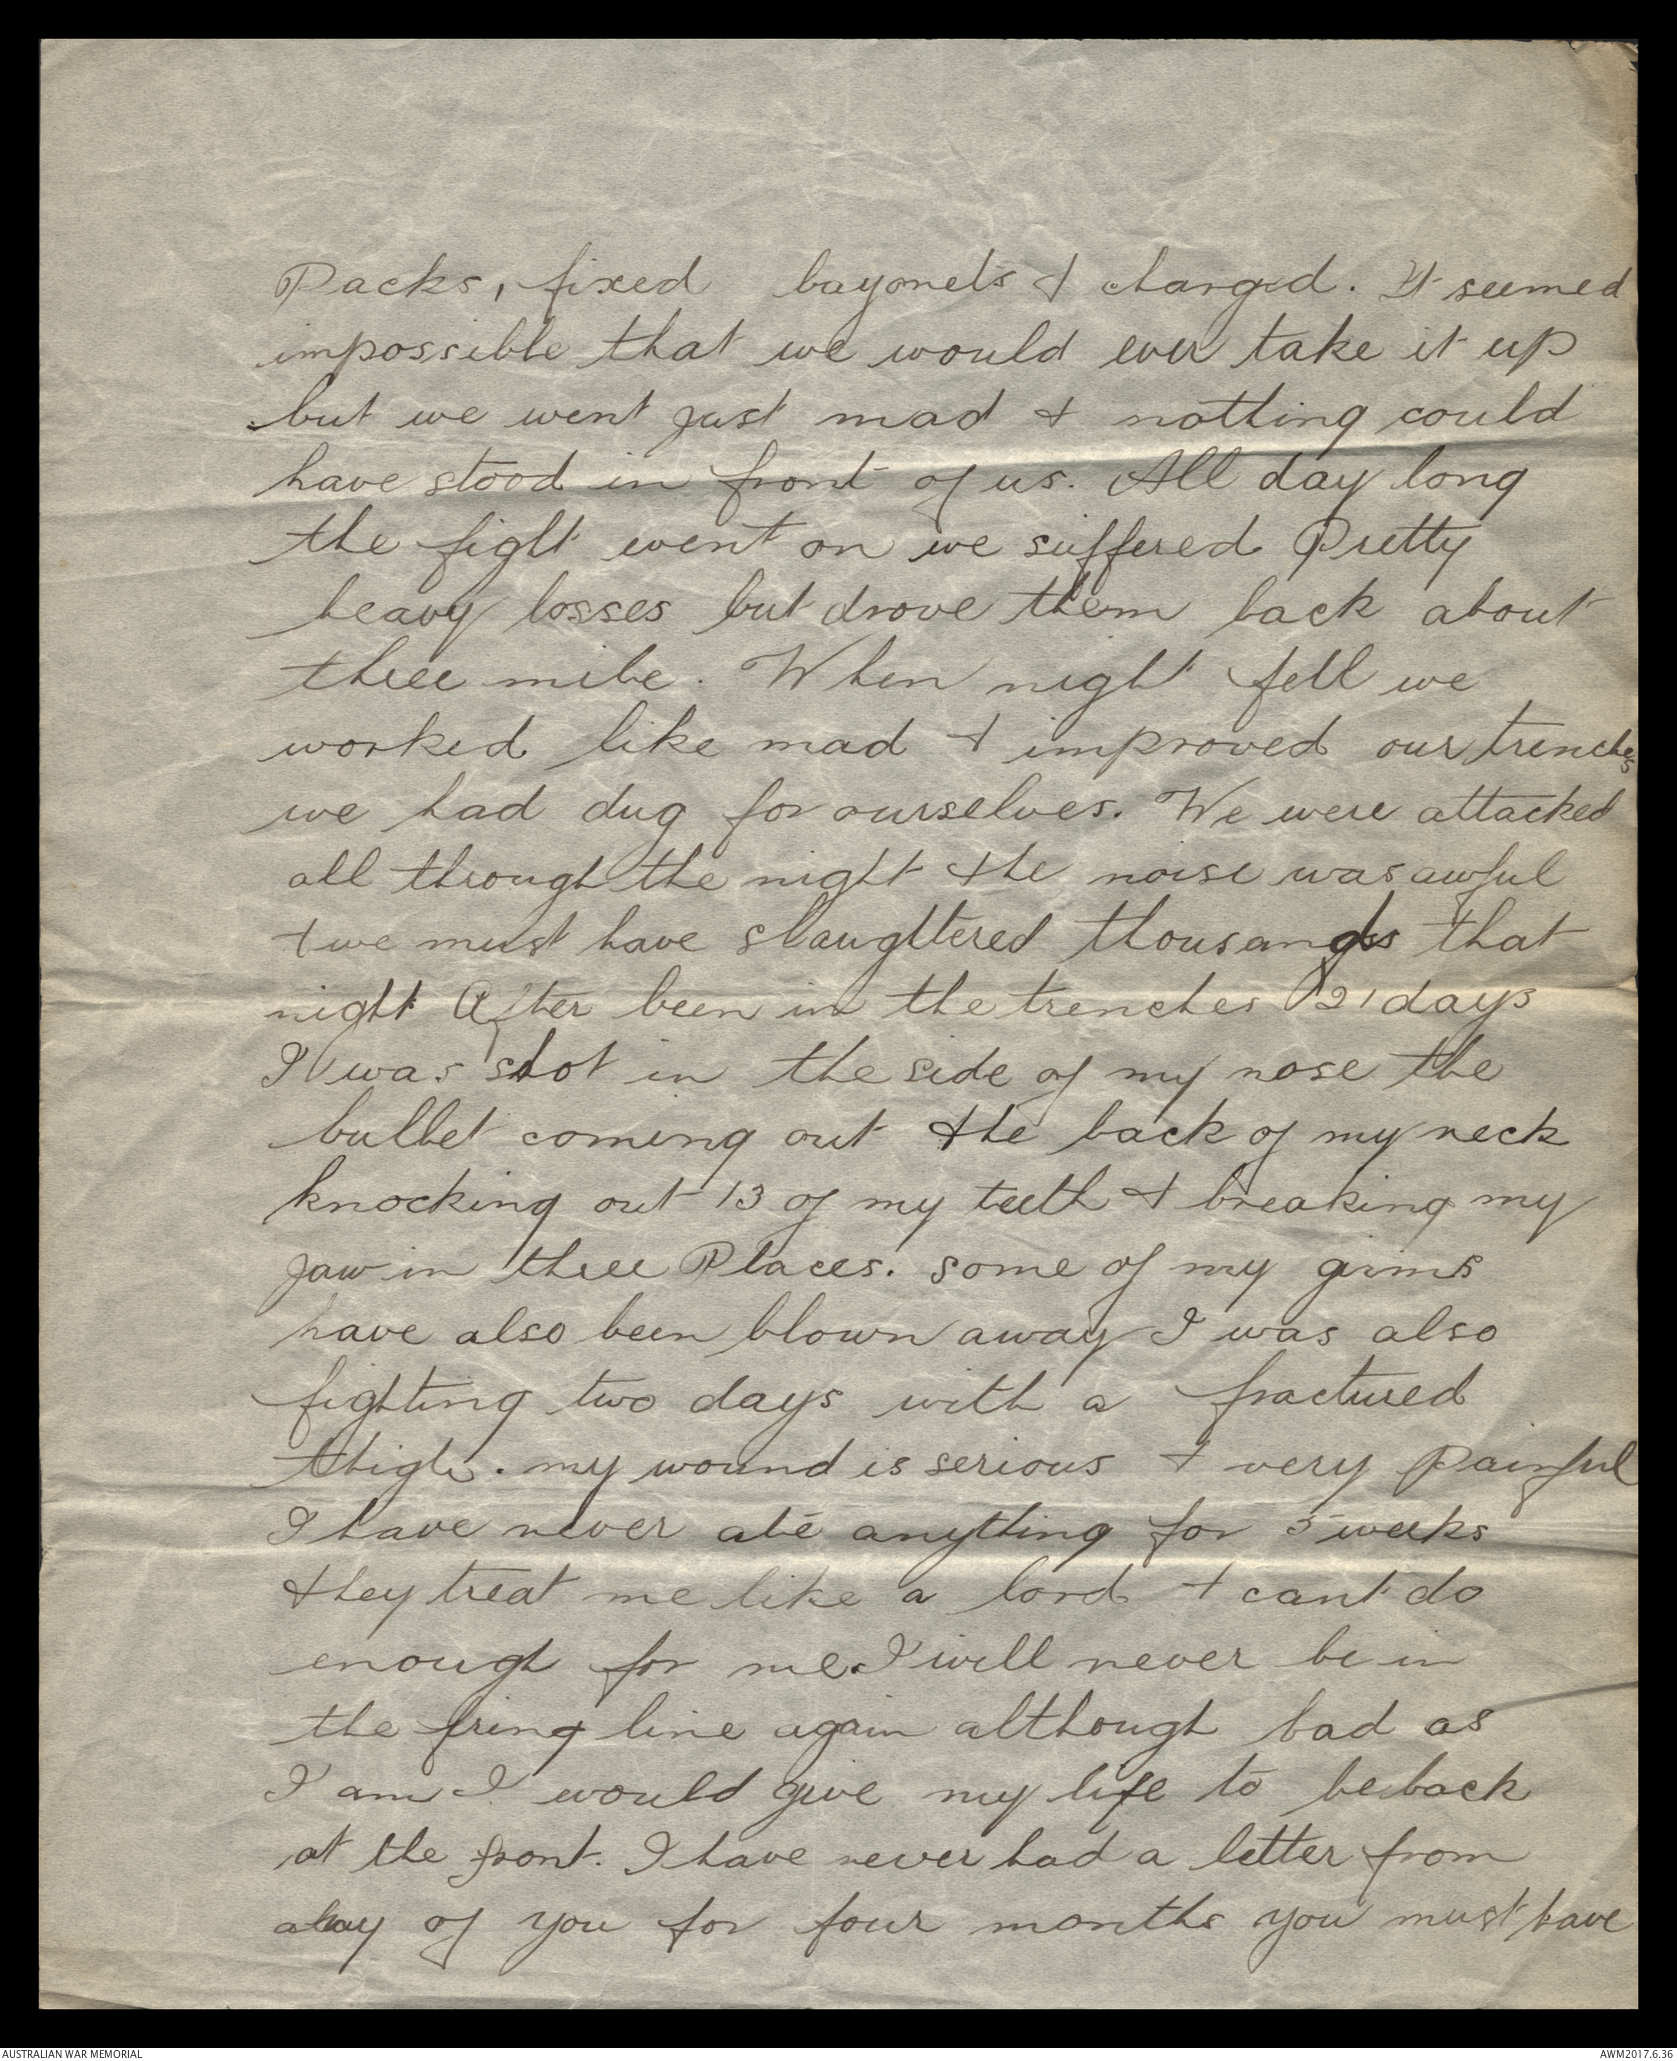 Packs, fixed bayonets & charged. It seemed
impossible that we would ever take it up
but we went just mad & nothing could
have stood in front of us. All day long
the fight went on we suffered Pretty
heavy losses but drove them back about
three mile. When night fell we
worked like mad & improved our trenches
we had dug for ourselves. We were attacked
all through the night & the noise was awful
& we must have slaughtered thousands that
night After been in the trenches 21 days
I was shot in the side of my nose the
bullet coming out the back of my neck
knocking out 13 of my teeth & breaking my
jaw in three Places. some of my gums
have also been blown away I was also
fighting two days with a fractured
thigh. my wound is serious & very Painful
I have never ate anything for 5 weeks
they treat me like a lord & cant do
enough for me. I will never be in
the fring line again although bad as
I am I would give my life to be back
at the front. I have never had a letter from
any of you for four months you must have
AUSTRALIAN WAR MEMORIAL
AWM2017.6.36